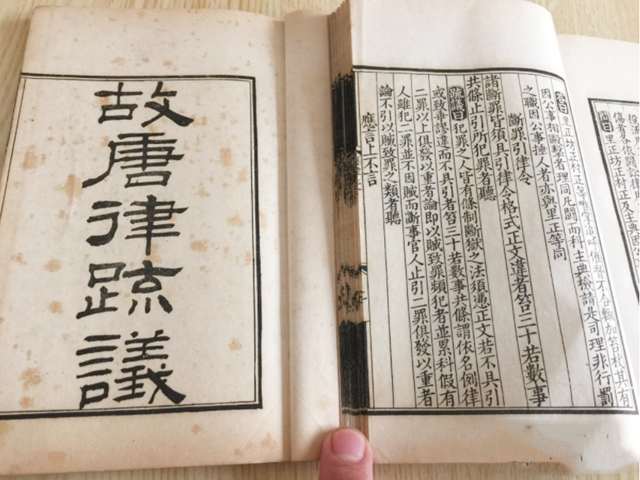 故唐律疏議
因公事相毆者理同凡鬬而科主典檢請是司理非行罰
之職因公事捶人者亦與里正等同
斷罪引律令
諸斷罪皆須具引律令格式正文違者笞三十若數事
共條止引所犯罪者聽
疏議曰犯罪之人皆有條制斷獄之法須憑正文若不具引
或致乖謬違而不具引者笞三十若數事共條謂依名例律
二罪以上俱發以重者論即以贓致罪頻犯者並累科假有
人雖犯二罪並不因贓而斷事官人止引二罪俱發以重者
論不引以贓致罪之類者聽
應言上不言